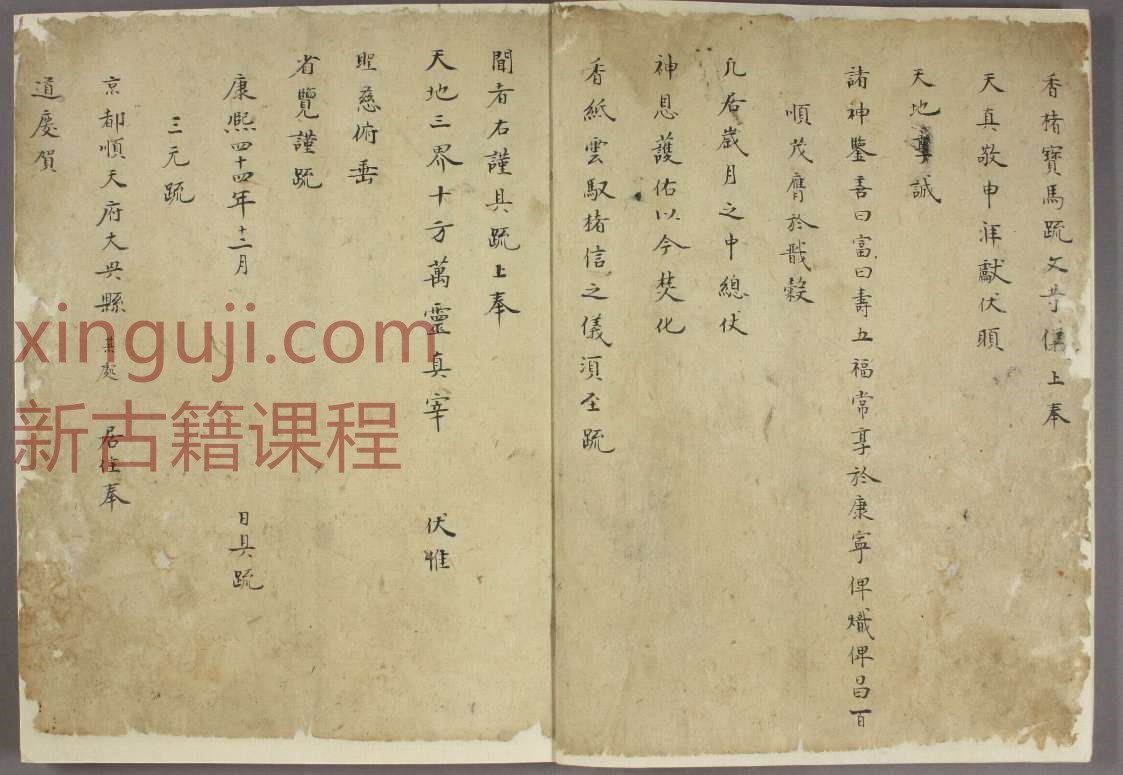 香楮寶馬疏文等儀上奉
天真敬申洋獻伏願
天地 誠
諸神鑒 曰富曰壽五福常享於康寧俾熾俾昌百
順茂膺於戩穀
凡居歲月之中總伏
神恩護佑以今焚化
香紙雲馭楮信之儀須至疏
聞者右謹具疏上奉
天地三界十方萬靈真宰 伏惟
聖慈俯垂
省覽謹疏
康熙四十四年十二月 日具疏
三元疏
京都順天府大興縣某處居住奉
道慶賀
xinguji.com
新古籍课程